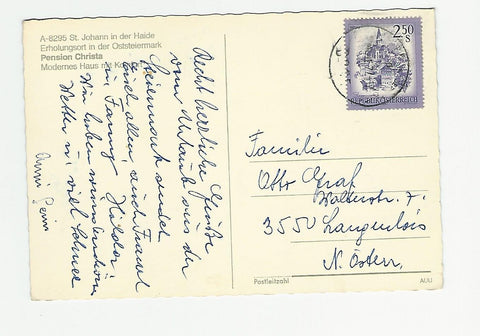 A-8295 St. Johann in der Haide
Erholungsort in der Oststeiermark
Pension Christa
Modernes Haus mit
Recht herzliche Grüße
vom Urlaub aus der
Steiermark sendet
und allen, auch Frau
Hilda.
Wir haben wunderschönes
Wetter u. viel Schnee
2,50
S
REPUBLIK ÖSTERREICH
Familie
Otto Graf
Walterstr. 7.
3550 Langenlois
N. Österr.
Postleitzahl